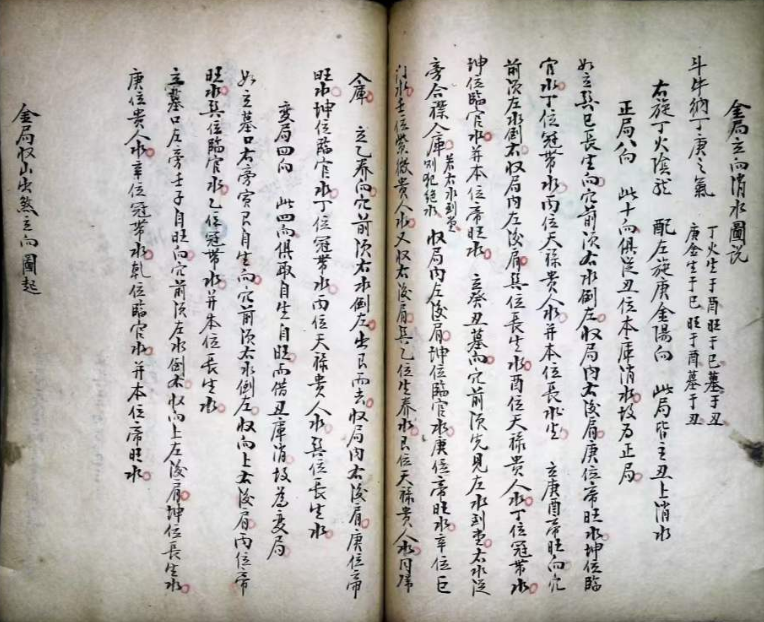 金局立向消水圖説
斗牛納丁庚之氣 丁火生于酉旺于巳墓于丑
庚金生于巳旺于酉墓于丑
右旋丁火陰龍 配左旋庚金陽向 此局皆主丑上消水
正局八向 此十向俱從丑位本庫消水故为正局
如立巽巳長生向穴前須右水倒左收局内右後肩庚位帝旺水坤位臨
官水丁位冠帶水丙位天祿貴人水并本位長生 立庚酉帝旺向穴
前須左水倒右收局内左後肩巽位長生水酉位天祿貴人水丁位冠帶水
坤位臨官水并本位帝旺水 立癸丑墓向穴前須先見左水到堂右水從
旁合襟入庫 若右水到堂
則犯絶水 收局内左後肩坤位臨官水庚位帝旺水辛位巨
门水壬位貴人水又收右後肩巽乙位生养水艮位天祿貴人水同歸
入庫 立乙养向穴前須右水倒左出艮而去收局内右後肩庚位帝
旺水坤位臨官水丁位冠帶水丙位天祿貴人水巽位長生水
变局四向 此四向俱取自生自旺而借丑庫消故為变局
如立墓口右旁寅艮自生向穴前須右水倒左收向上右後肩丙位帝
旺水巽位臨官水乙位冠帶水并本位長生水
立墓口左旁壬子自旺向穴前須左水倒右收向上左後肩坤位長生水
庚位貴人水辛位冠帶水乾位臨官水并本位帝旺水
金局收山出煞立向圖起